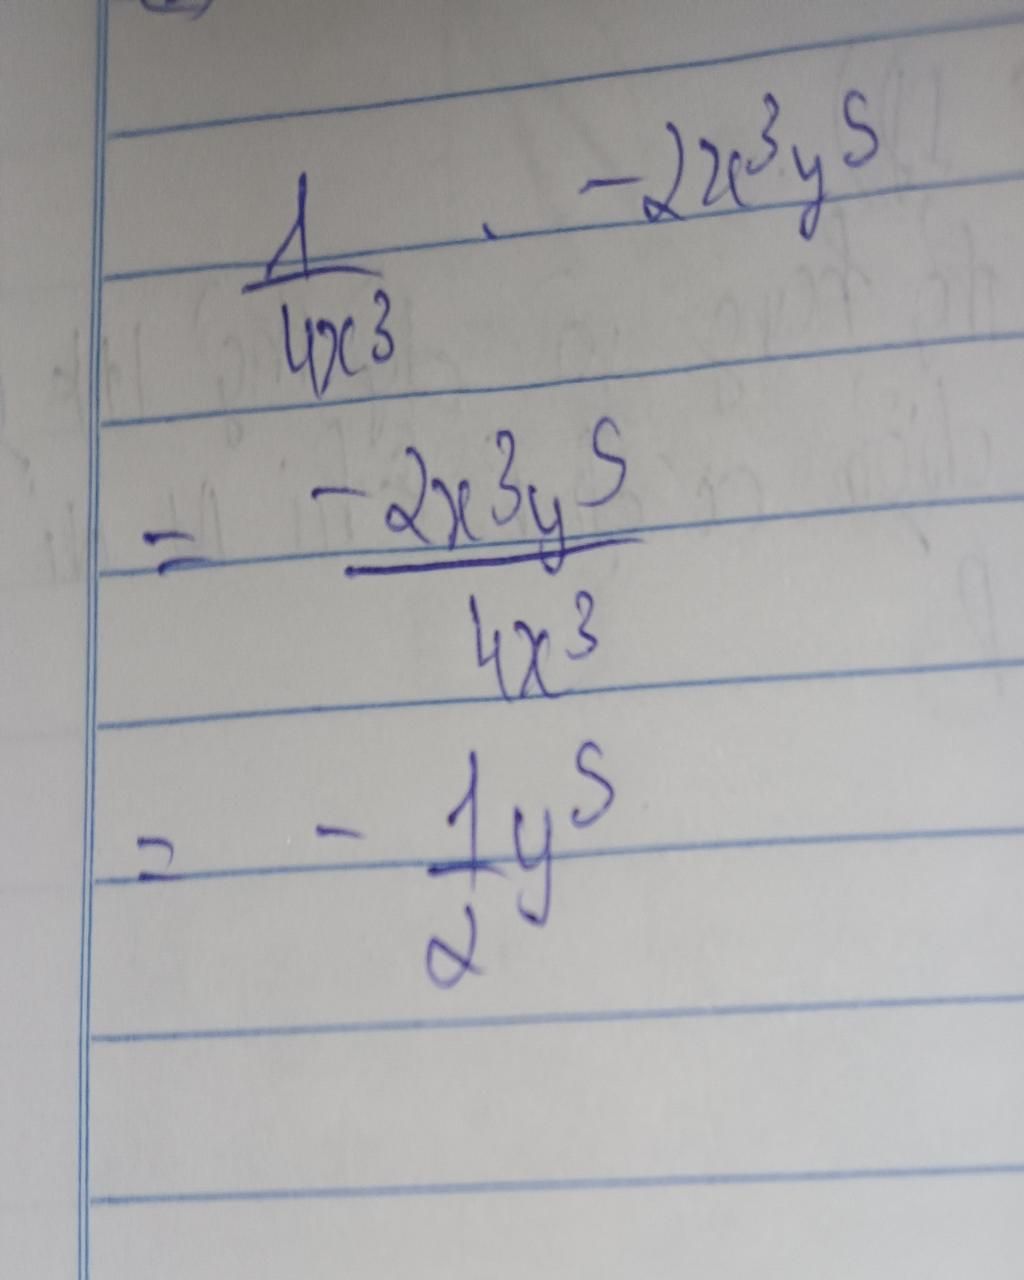 1/4x³ . -2x³y⁵
= -2x³y⁵/4x³
= - 1/2 y⁵